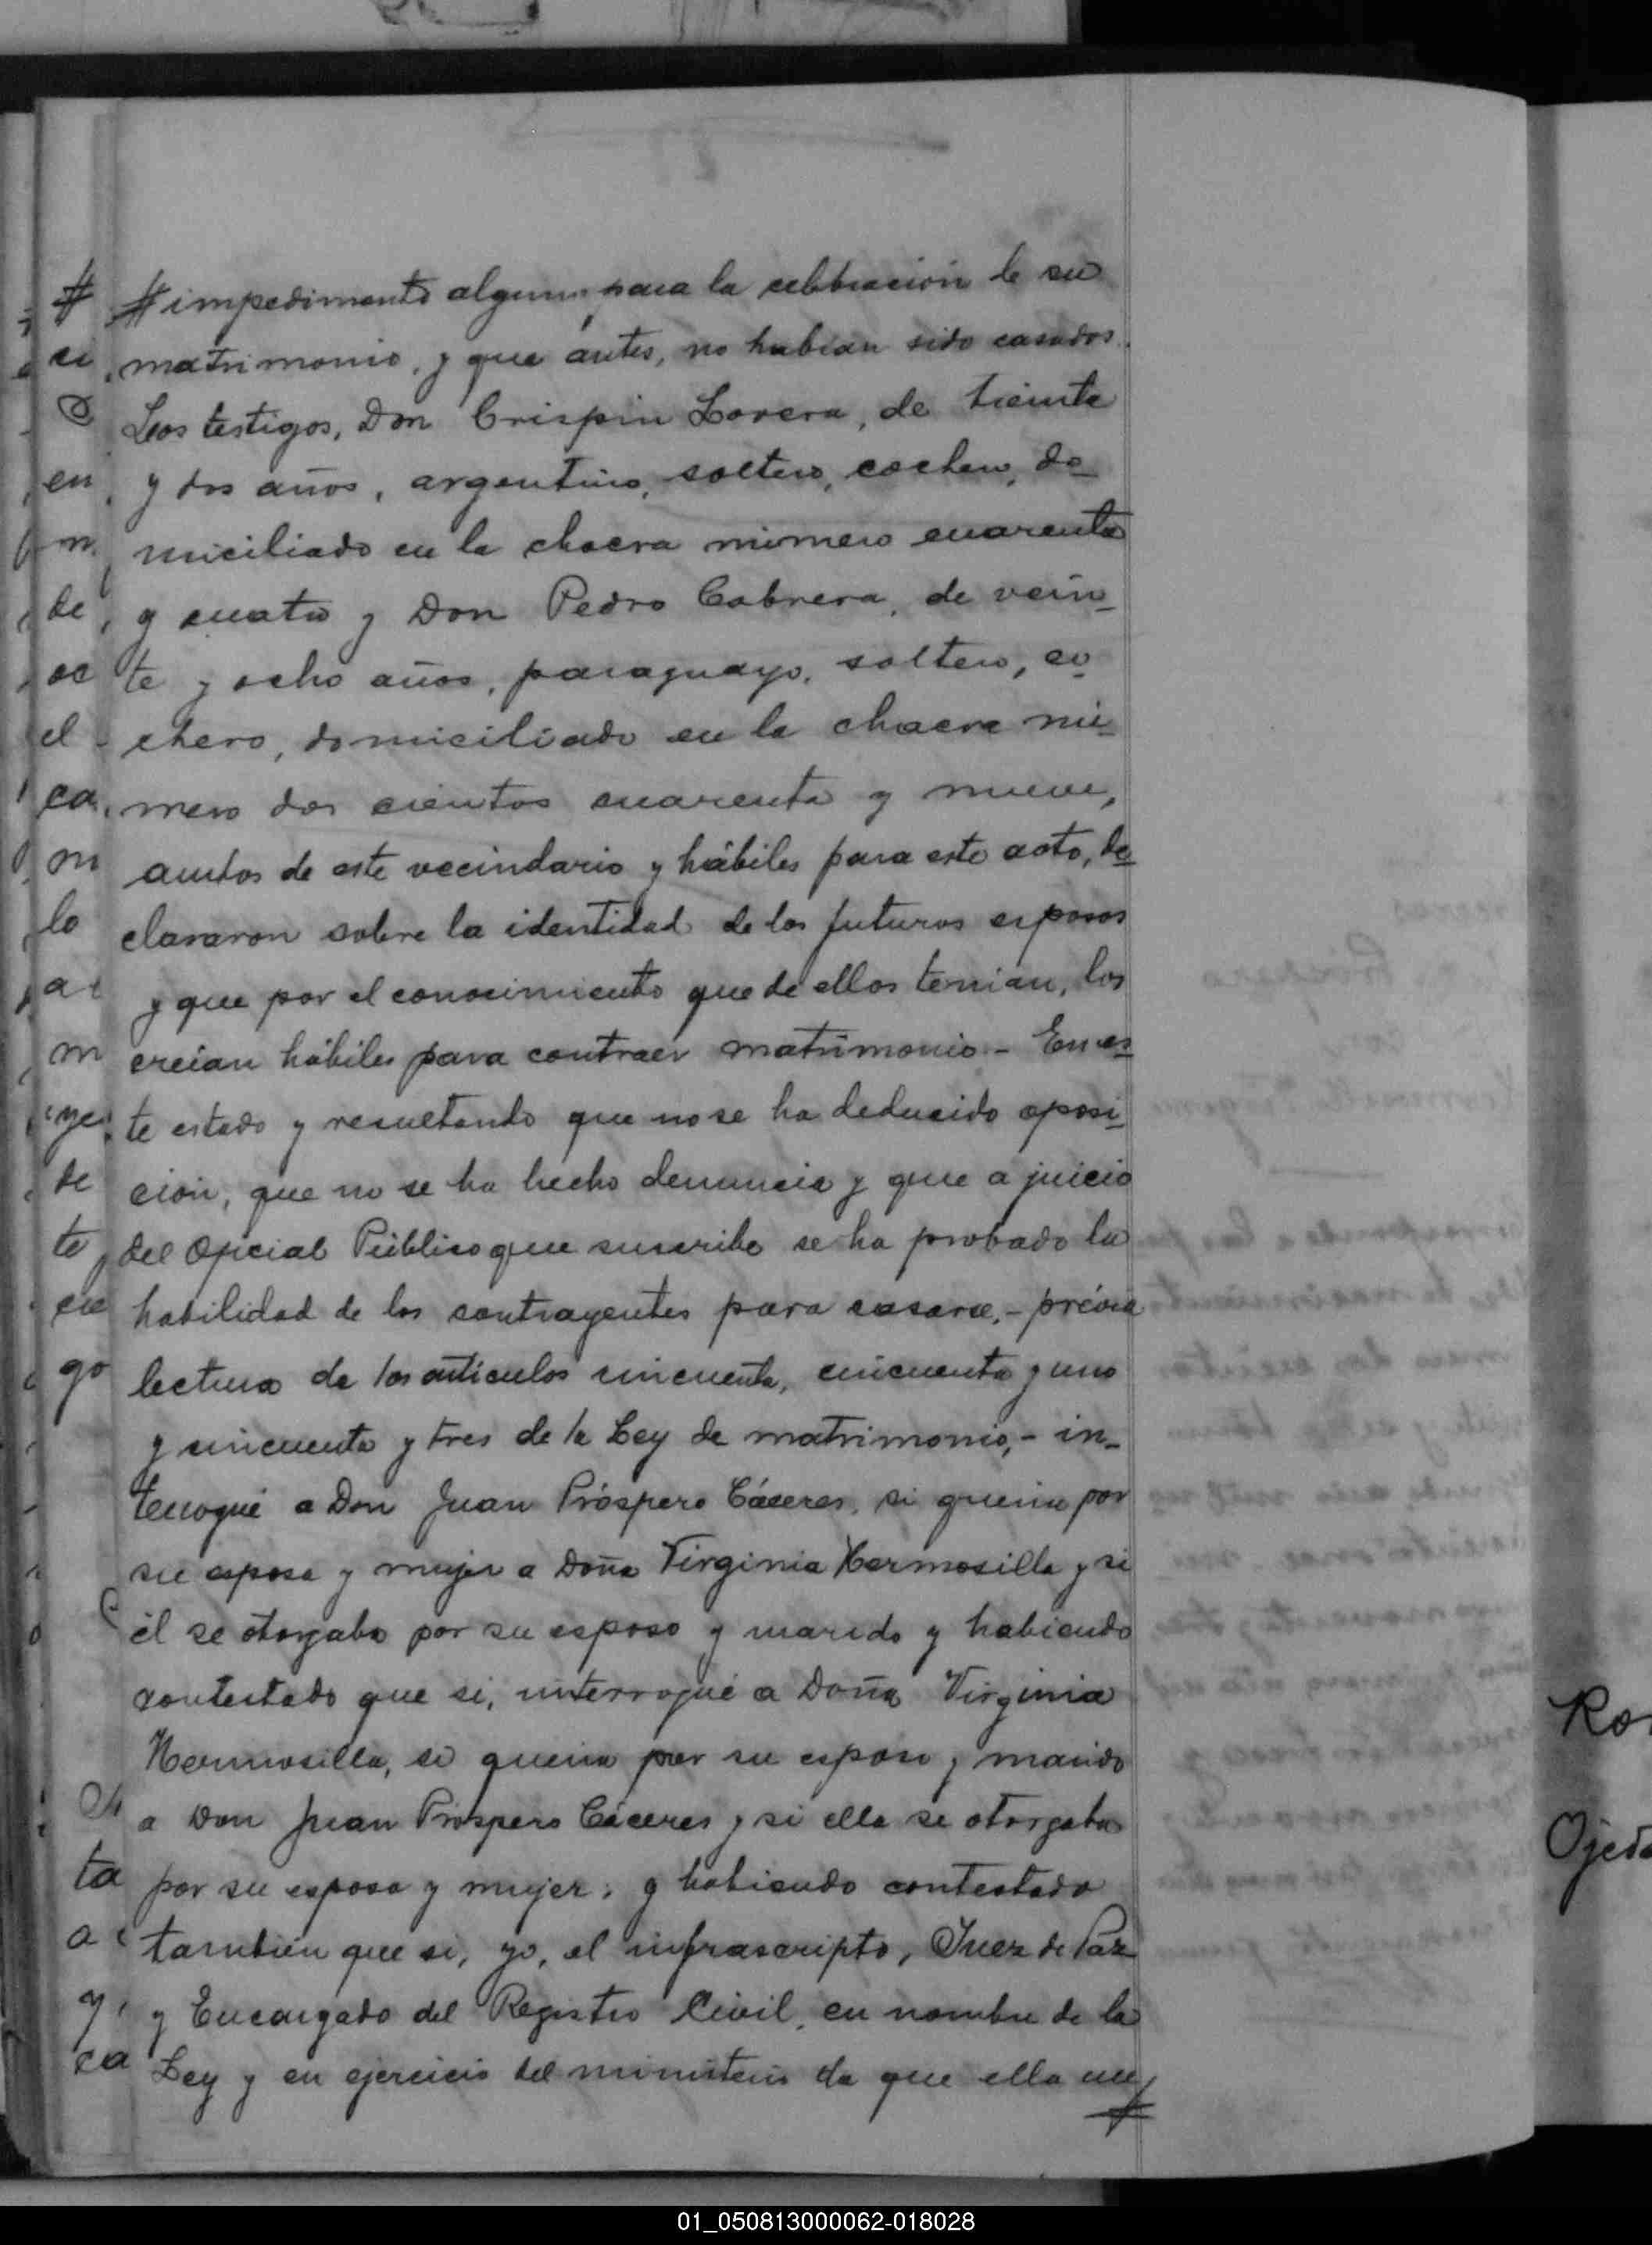 # impedimento alguno para la celebración de su
matrimonio, y que ántes, no habian sido casados.
Los testigos, Don Crispin Lovera, de treinta
y dos años, argentino, soltero, cochero, do-
miciliado en la chacra número cuarenta
y cuatro y Don Pedro Cabrera, de vein-
te y ocho años, paraguayo, soltero, co-
chero, domiciliado en la chacra nú-
mero dos cientos cuarenta y nueve,
ambos de este vecindario y hábiles para este acto, de-
clararon sobre la identidad de los futuros esposos
y que por el conocimiento que de ellos tenian, los
creian hábiles para contraer matrimonio.- En es-
te estado y resultando que no se ha deducido oposi-
ción, que no se ha hecho denuncia y que a juicio
del Oficial Público que suscribe se ha probado la
habilidad de los contrayentes para casarse,- prévia
lectura de los artículos cincuenta, cincuenta y uno
y cincuenta y tres de la Ley de matrimonio,- in-
terrogué a Don Juan Próspero Cáceres, si queria por
su esposa y mujer a Doña Virginia Hermosilla y si
él se otorgaba por su esposo y marido y habiendo
contestado que si, interrogué a Doña Virginia
Hermosilla, si queria por su esposo y marido
a Don Juan Próspero Cáceres y si ella se otorgaba
por su esposa y mujer; y habiendo contestado
también que si, yo, el infrascripto, Juez de Paz
y Encargado del Registro Civil, en nombre de la
Ley y en ejercicio del ministerio de que ella me
#
Ojeda
01_050813000062-018028